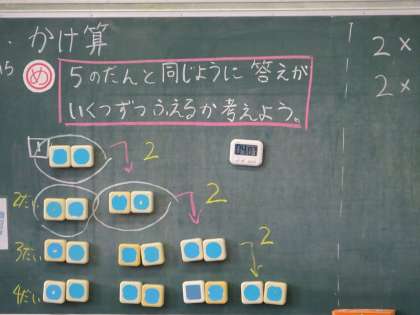 かけ算
15
め
5のだんと同じように答えが
いくつずつふえるか考えよう。
2×
2×
2
2だい
2
3だい
2
4だい